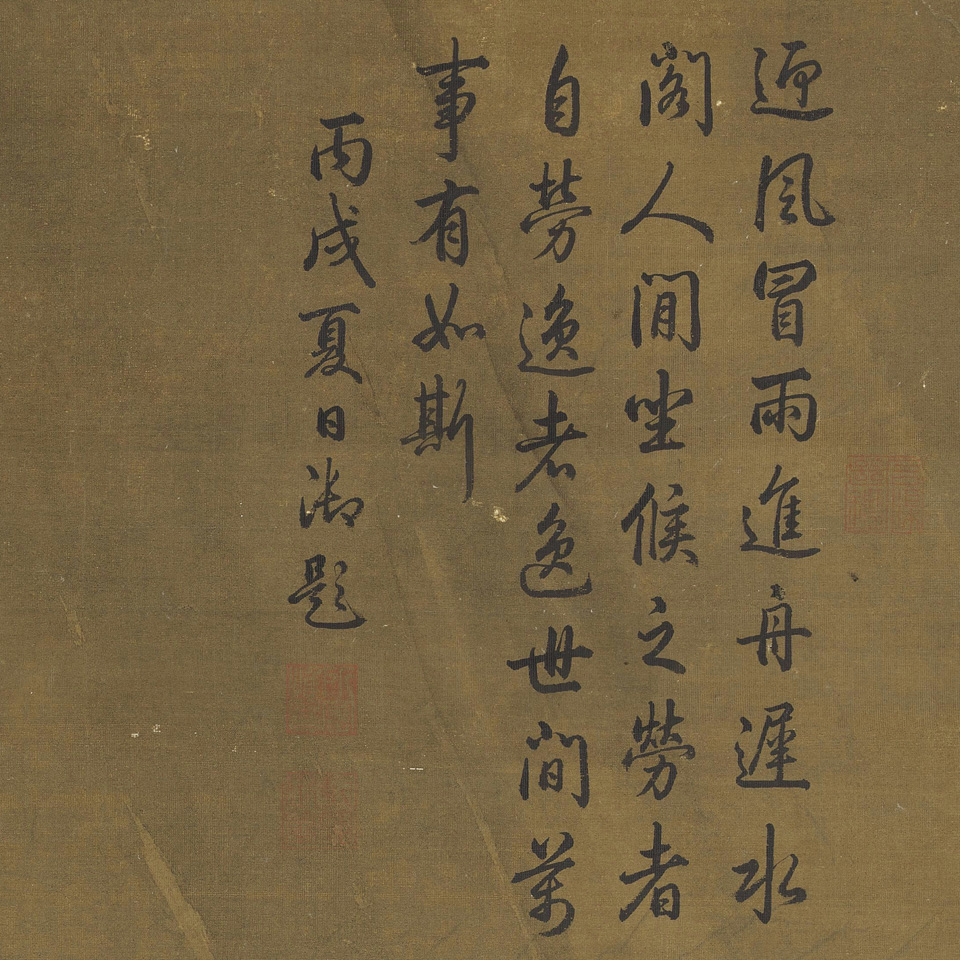 迎風冒雨進舟遲水
閣人間坐候之勞者
自勞逸者逸世間萬
事有如斯
丙戌夏日御題